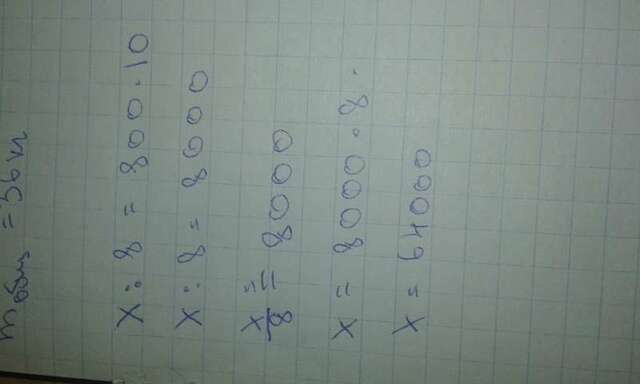 m общ = 36 кг
x : 8 = 800 · 10
x : 8 = 8000
x/8 = 8000
x = 8000 · 8 .
x = 64000